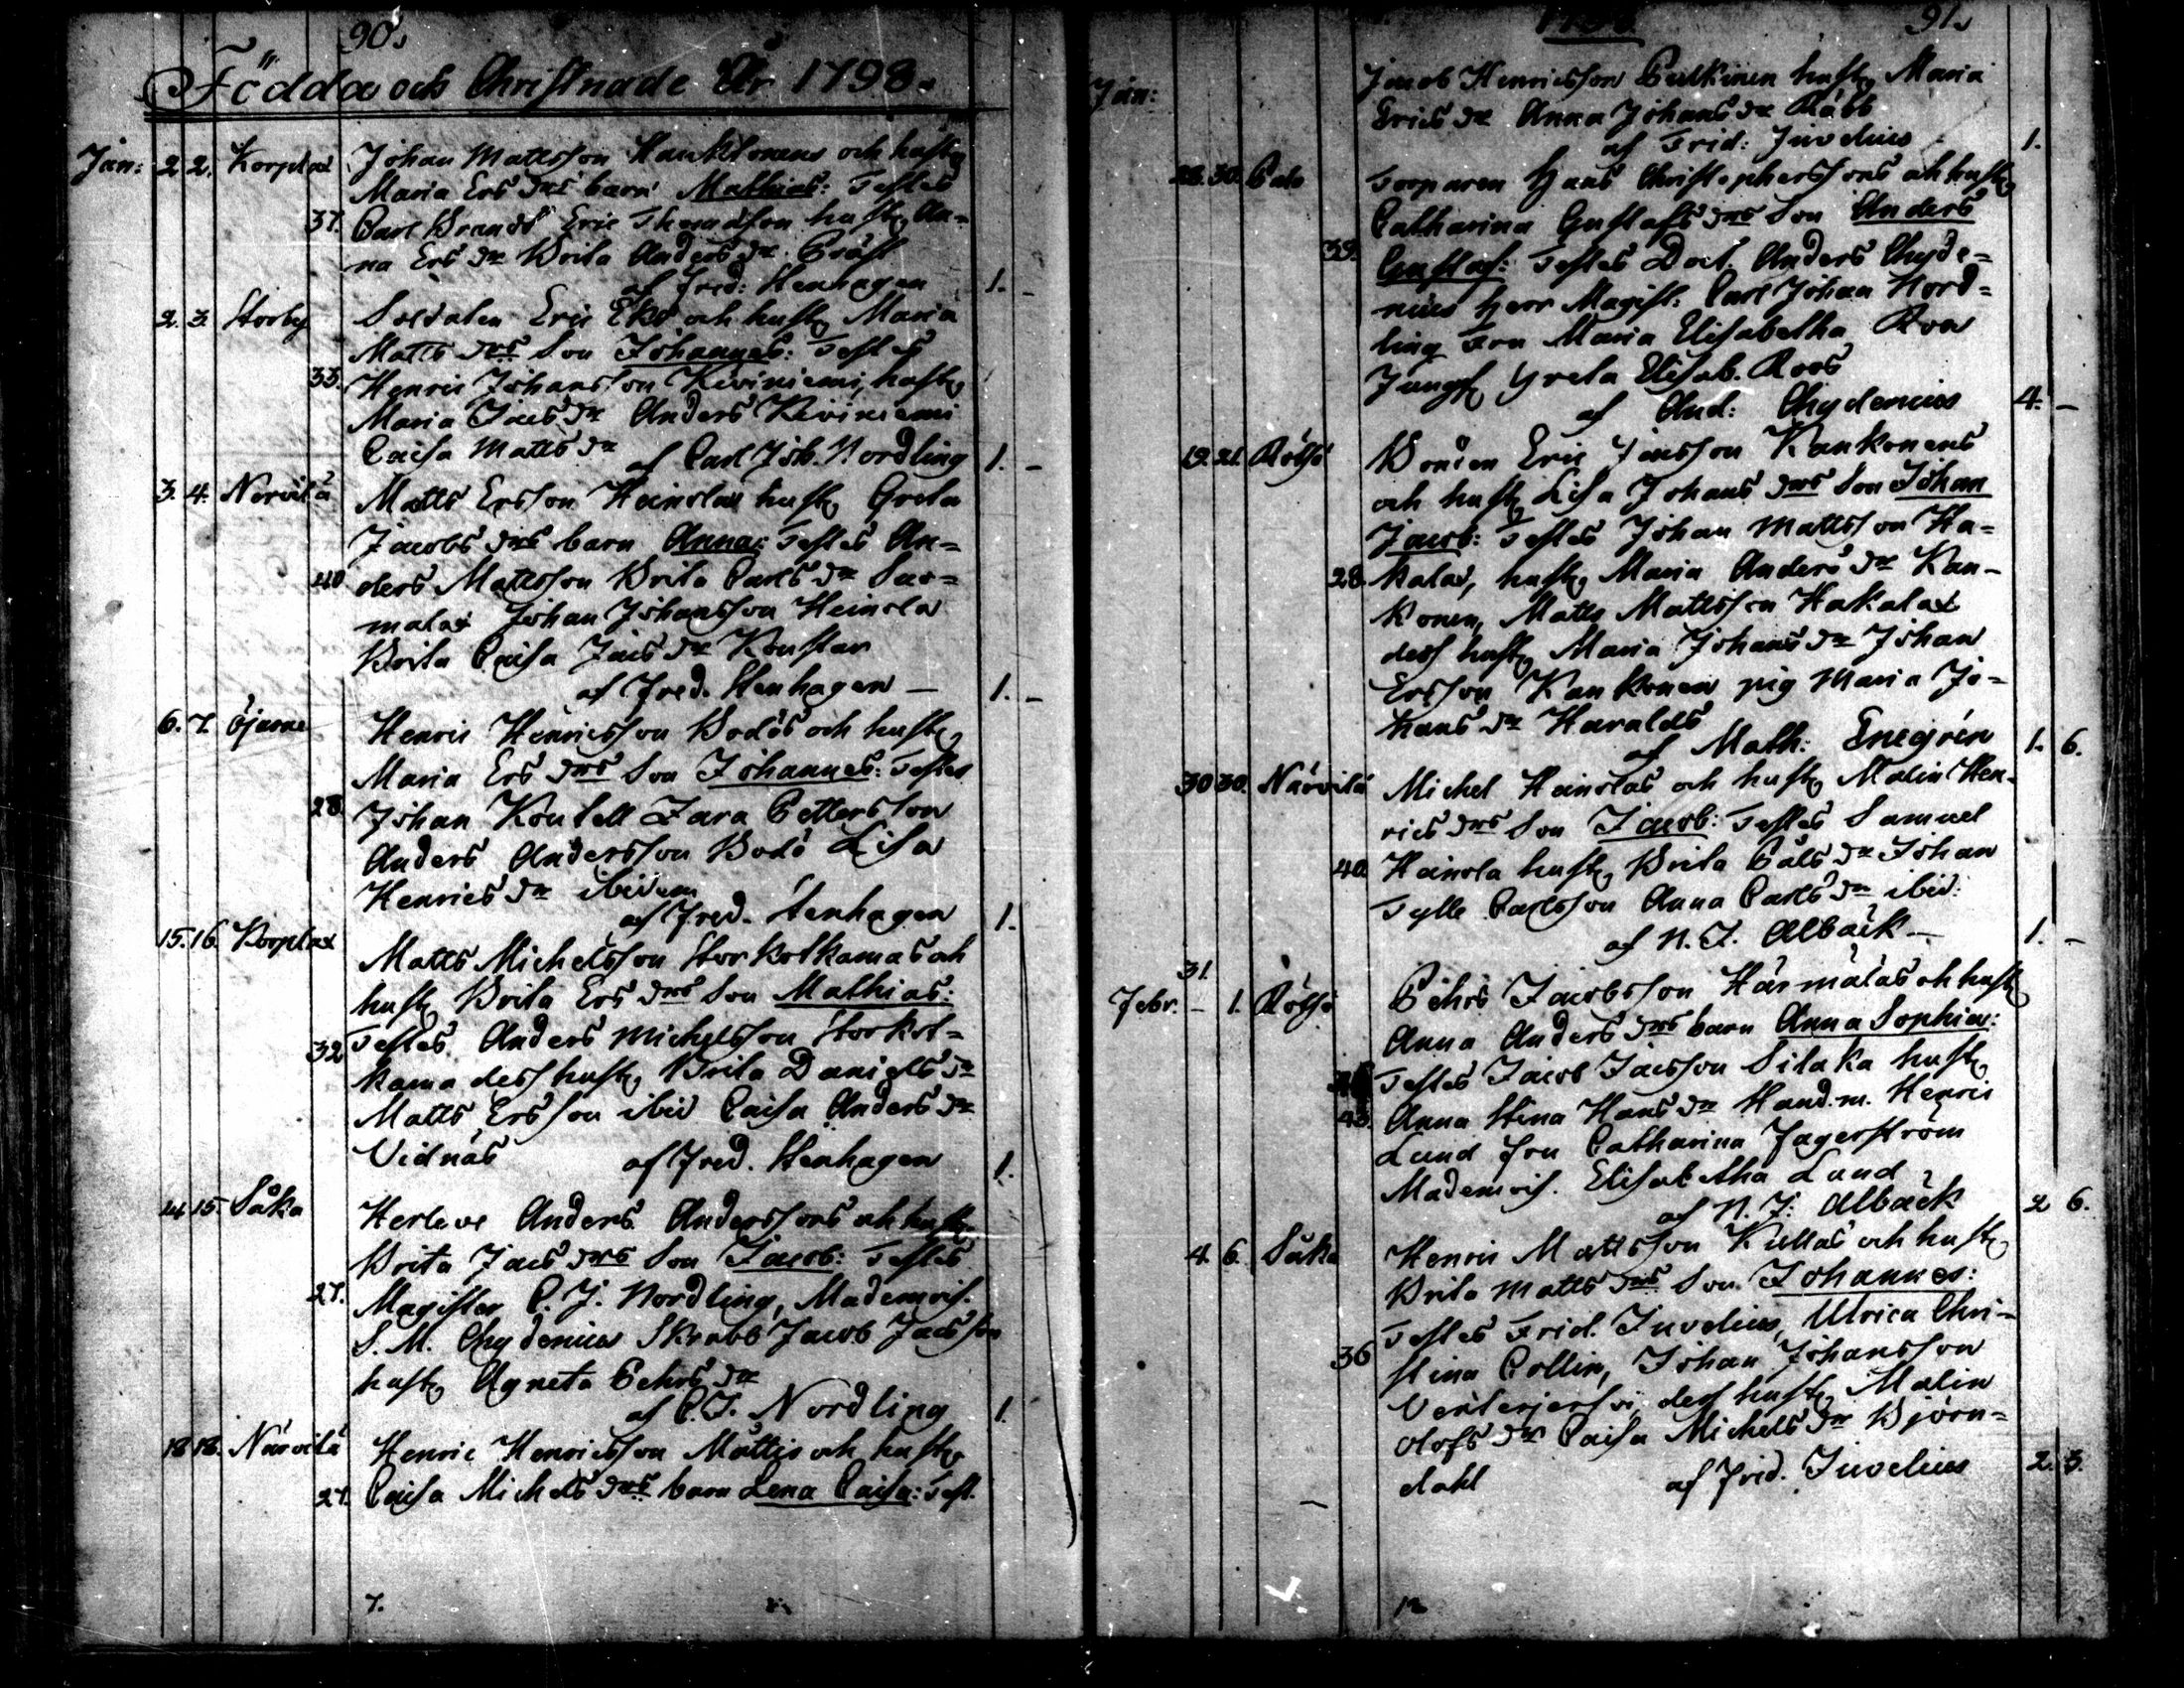 90.
Födda och Christnade År 1798.
Jan: 2. 2. Korplax Johan Mattsson och hustr
Maria Ers drs barn Mathias: Testes
37. Carl Brandt Eric hustr An=
na Ers dr Brita Anders dr Präst
af Fred: Stenhagen 1. -
2. 3. Storby Soldaten Eric Ek och hustr Maria
Matts drs Son Johannes: Testes
33. Henric Johansson Kiviniemi, hustr
Maria Jacs dr Anders Kiviniemi
Caisa Matts dr af Carl Joh. Nordling 1. -
3. 4. Nervilä Matts Ersson Heinolas hustr Greta
Jacobs drs barn Anna: Testes An=
40 ders Mattsson Brita Carls dr Sar=
malax Johan Johansson Heinola
Brita Caisa Jacs dr
af Fred. Stenhagen - 1. -
6. 7. Öjarne Henric Henricsson Bodös och hustr
Maria Ers drs Son Johannes: Testes
28. Johan Kontell Zara Pettersson
Anders Andersson Bodö Lisa
Henrics dr ibidem
af Fred. Stenhagen 1.
15. 16. Korplax Matts Michelsson Storkotkamas och
hustr Brita Ers drs Son Mathias:
32 Testes Anders Michelsson Storkot=
kama dess hustr Brita Daniels dr
Matts Ersson ibid Caisa Anders dr
Vidnäs af Fred. Stenhagen 1.
14 15. Såka Herleve Anders Anderssons och hustr
Brita Jacs drs Son Jacob: Testes
27. Magister C. J. Nordling, Mademois.
S. M. Chydenius Skrabb Jacob Jacsson
hustr Agneta Pehrs dr
af C. J. Nordling 1.
18 18. Närvilä Henric Henricsson Mattis och hustr
27. Caisa Michels drs barn Lena Caisa: Test.
7.
91.
Jan: Jacob Henricsson Pulkinen hustr Maria
Erics dr Anna Johans dr Rabb
af Frid: Juvelius 1.
30. Torparen Hans Christophersons och hustr
Catharina Gustafs drs Son Anders
39. Gustaf: Testes Doct. Anders Chyde=
nius Herr Magist. Carl Johan Nord=
ling Fru Maria Elisabetha Roos
Jungf Greta Elisab. Roos
af And: Chydenius 4. -
19. 21. Rötsö Bonden Eric Jacsson Kankonens
och hustr Lisa Johans drs Son Johan
Jacob: Testes Johan Mattsson Ha=
28. kalax, hustr Maria Anders dr Kan-
konen, Matts Mattsson Hakalax
dess hustr Maria Johans dr Johan
Ersson Kankonen pig Maria Jo=
hans dr Haralds
af Math: Enegrén 1. 6.
30 30. Närvilä Michel Heinolas och hustr Malin Hen-
rics drs Son Jacob: Testes Samuel
40 Heinola hustr Brita Påls dr Johan
Carlsson Anna Carls dr ibid:
af N. J. Alback - 1. -
31.
Febr. - 1. Rötsö Pehrs Jacobsson Härmälas och hustr
Anna Anders drs barn Anna Sophia:
Testes Jacob Jacsson Silaka hustr
43. Anna Stina Hans dr Hand.m. Henric
Lund fru Catharina Jagerström
Mademois. Elisabetha Lund
af N. J: Alback 2 6.
4. 6. Såka Henric Mattsson Kullas och hustr
Brita Matts drs Son Johannes:
Testes Frid. Juvelius, Ulrica Chri-
36 stina Collin, Johan Johansson
dess hustr Malin
Olofs dr Caisa Michels dr Björn=
dahl af Frid. Juvelius 2. 3.